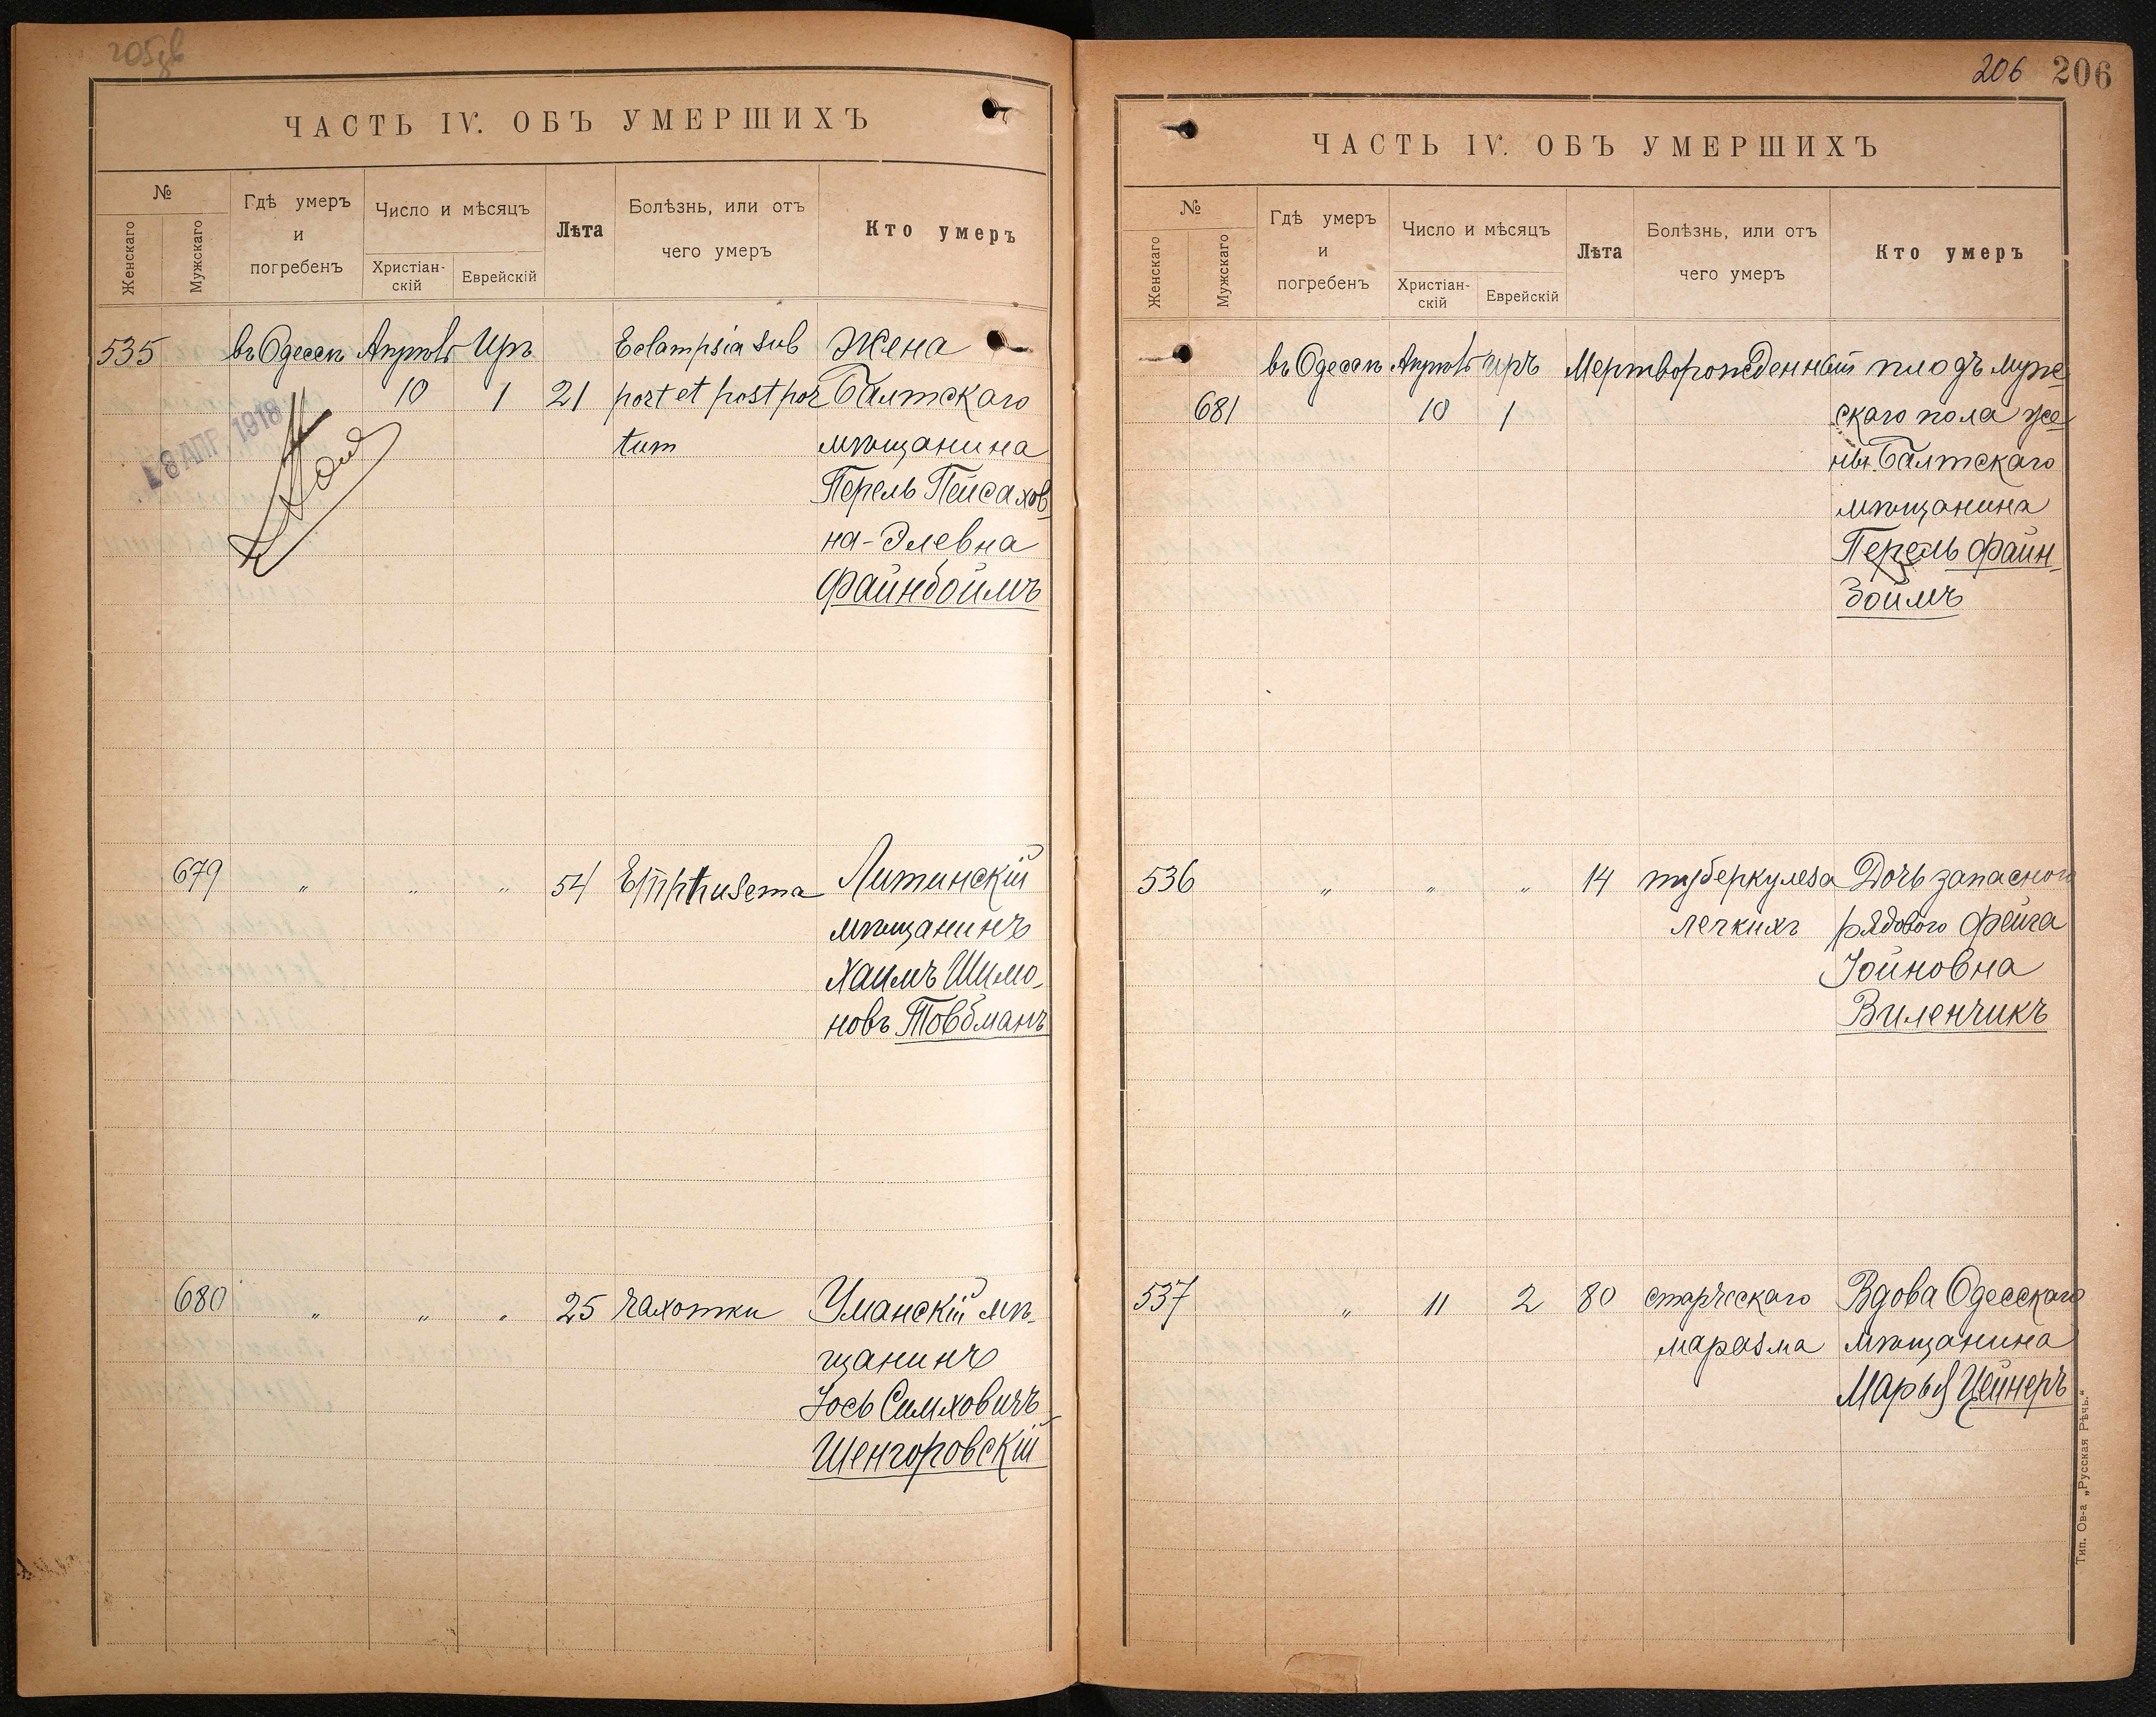 ЧАСТЬ IV. ОБЪ УМЕРШИХЪ
№
Женскаго
Мужскаго
Гдѣ умеръ
и
погребенъ
Число и мѣсяцъ
Христіан-
скій
Еврейскій
Лѣта
Болѣзнь, или отъ
чего умеръ
Кто умеръ
535 въ Одессѣ Апрѣль Иръ Eclampsia sub Жена
10 1 21 port et post por Балтскаго
tum мѣщанина
Перель Пейсахов
на-Элевна
Файнбоймъ
8 АПР 1918
679 „ „ „ 54 Emphusema Литинскій
мѣщанинъ
Хаимъ Шимо-
новъ Товбманъ
680 „ „ „ 25 чахотки Уманскій мѣ-
щанинъ
Іось Симховичъ
Шенгоровскій
206 206
ЧАСТЬ IV. ОБЪ УМЕРШИХЪ
№
Женскаго
Мужскаго
Гдѣ умеръ
и
погребенъ
Число и мѣсяцъ
Христіан-
скій
Еврейскій
Лѣта
Болѣзнь, или отъ
чего умеръ
Кто умеръ
въ Одессѣ Апрѣль Иръ Мертворожденный плодъ муже
681 10 1 скаго пола же
ны Балтскаго
мѣщанина
Перель Файн-
боймъ
536 „ „ „ 14 туберкулеза Дочь запасного
легкихъ рядового Фейга
Іойновна
Виленчикъ
537 „ 11 2 80 старческаго Вдова Одесскаго
маразма мѣщанина
Марья Цейнеръ
Тип. Ов-а „Русская Рѣчь.“